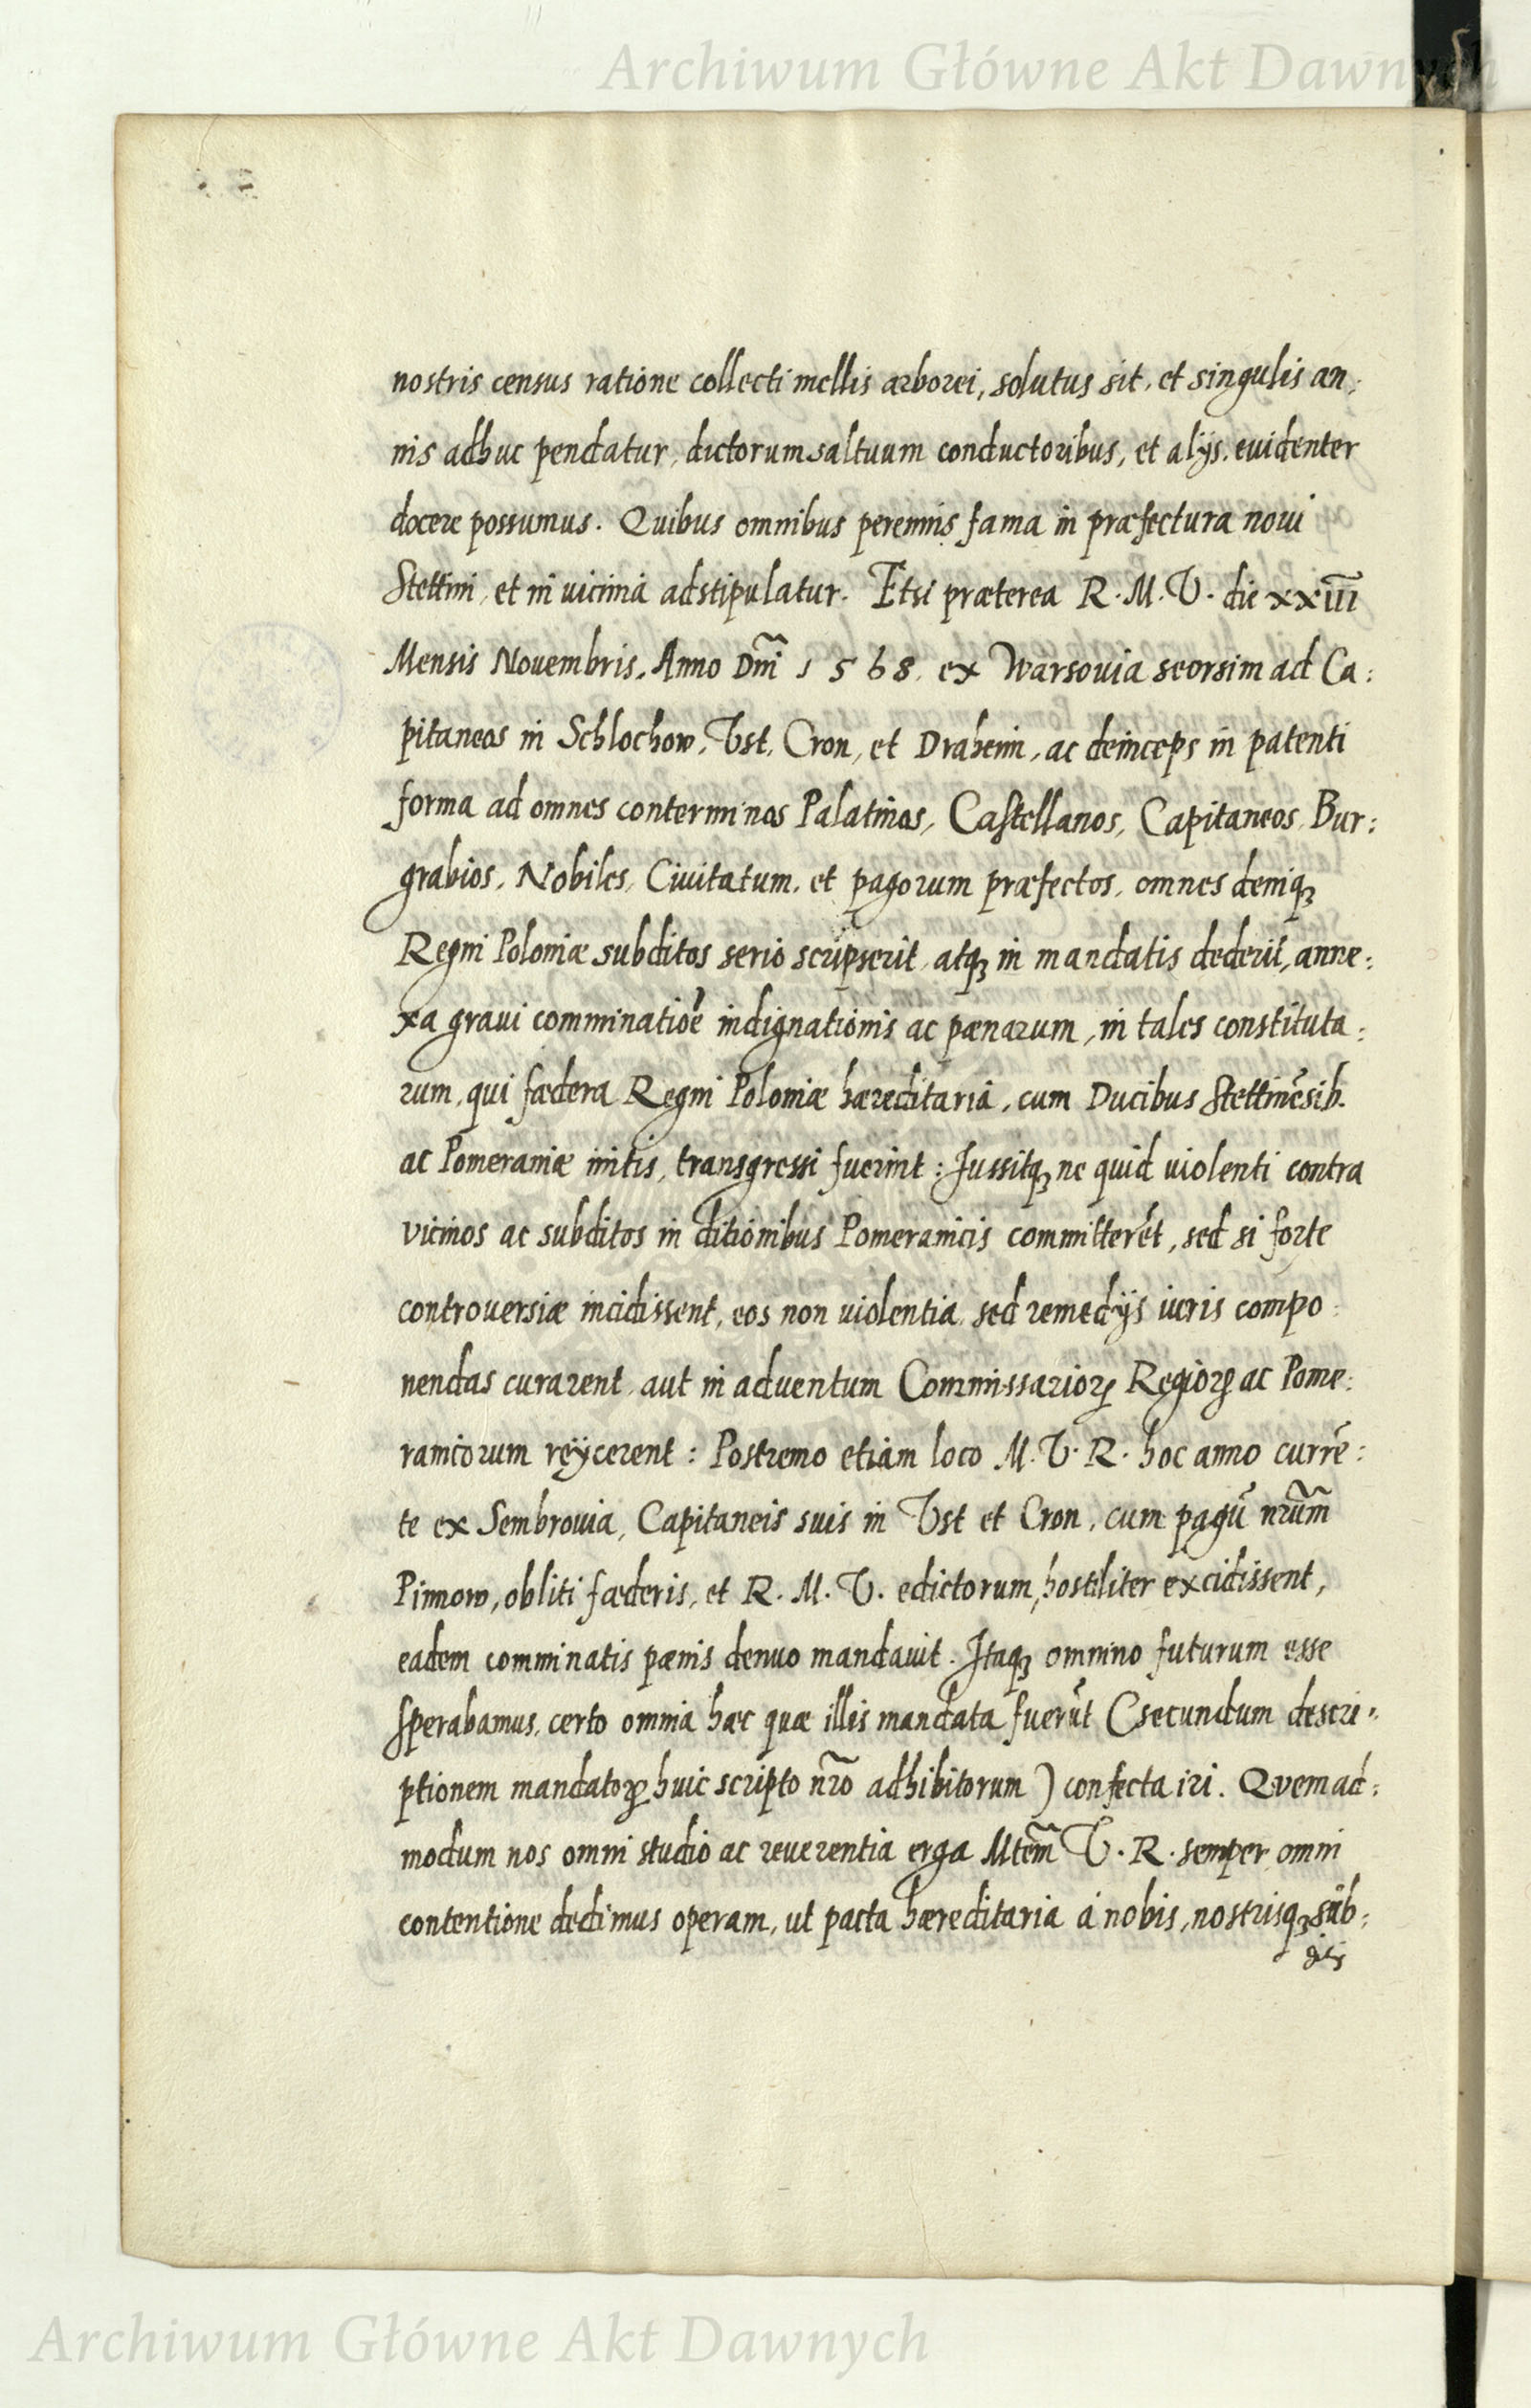 Archiwum Główne Akt Dawnych
nostris census ratione collecti mellis arborei, solutus sit, et singulis an:
nis adhuc pendatur, dictorum saltuum conductoribus, et alijs, euidenter
docere possumus. Quibus omnibus perennis fama in præfectura noui
Stettini, et in uicinia adstipulatur. Etsi præterea R. M. V. die xxiiii
Mensis Nouembris, Anno Dnĩ 1568, ex Warsouia seorsim ad Ca:
pitaneos in Schlochow, Vst, Cron, et Draheim, ac deinceps in patenti
forma ad omnes conterminos Palatinos, Castellanos, Capitaneos, Bur:
grabios, Nobiles, Ciuitatum, et pagorum præfectos, omnes deniqꝫ
Regni Poloniæ subditos serio scripserit, atqꝫ in mandatis dederit, anne:
xa graui comminatiõe indignationis ac pænarum, in tales constituta:
rum, qui fædera Regni Poloniæ hæreditaria, cum Ducibus Stettinẽsib.
ac Pomeraniæ initis, transgressi fuerint: Jussitqꝫ ne quid uiolenti contra
vicinos ac subditos in ditionibus Pomeranicis committerẽt, sed si forte
controuersiæ incidissent, eos non uiolentia, sed remedijs iuris compo:
nendas curarent, aut in aduentum Commissarioꝝ Regioꝝ ac Pome:
ranicorum reijcerent: Postremo etiam loco M. V. R. hoc anno currẽ:
te ex Sembrouia, Capitaneis suis in Vst et Cron, cum pagũ nrũm
Pinnow, obliti fæderis, et R. M. V. edictorum, hostiliter excidissent,
eadem comminatis pænis denuo mandauit. Itaqꝫ omnino futurum esse
sperabamus, certo omnia hæc quæ illis mandata fuerũt (secundum descri:
ptionem mandatoꝝ huic scripto nrõ adhibitorum) confecta iri. Quemad:
modum nos omni studio ac reuerentia erga Mtẽm V. R. semper omni
contentione dedimus operam, ut pacta hæreditaria à nobis, nostrisqꝫ sub:
ditis
Archiwum Główne Akt Dawnych